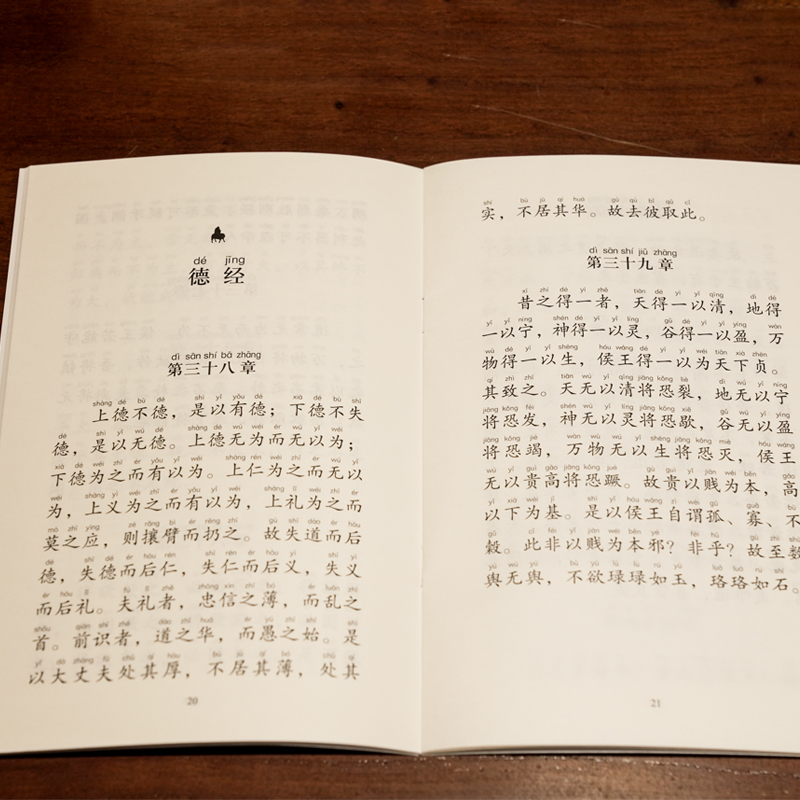 dé jīng
德经
dì sān shí bā zhāng
第三十八章
上德不德，是以有德；下德不失
德，是以无德。上德无为而无以为；
下德为之而有以为。上仁为之而无以
为，上义为之而有以为，上礼为之而
莫之应，则攘臂而扔之。故失道而后
德，失德而后仁，失仁而后义，失义
而后礼。夫礼者，忠信之薄，而乱之
首。前识者，道之华，而愚之始。是
以大丈夫处其厚，不居其薄，处其
20
实，不居其华。故去彼取此。
dì sān shí jiǔ zhāng
第三十九章
昔之得一者，天得一以清，地得
一以宁，神得一以灵，谷得一以盈，万
物得一以生，侯王得一以为天下贞。
其致之。天无以清将恐裂，地无以宁
将恐发，神无以灵将恐歇，谷无以盈
将恐竭，万物无以生将恐灭，侯王
无以贵高将恐蹶。故贵以贱为本，高
以下为基。是以侯王自谓孤、寡、不
穀。此非以贱为本邪？非乎？故至数
舆无舆，不欲琭琭如玉，珞珞如石。
21